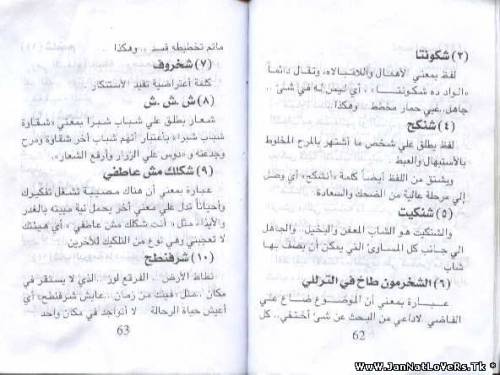 (٣) شكونتا
لفظ بمعني الأهمال واللاقبالاه، وتقال دائماً
«الواد ده شكونتتا» ، أي ليس له في شئ
جاهل..غبي حمار مخطط.. وهكذا.
(٤) شنكح
لفظ يطلق علي شخص ما أشتهر بالمرح المخلوط
بالأستهبال والعبط
ويشتق من اللفظ أيضاً كلمة «أنشكح» أي وصل
إلي مرحلة عالية من الضحك والسعادة.
(٥) شنكيت
والشنكيت هو الشاب المعفن والبخيل.. والجاهل
الي جانب كل المساوئ التي يمكن أن يصف بها
شاب
(٦) الشخرمون طاخ في الترللي
عبارة بمعني أن الموضوع ضاع علي
الفاضي لاداعي من البحث عن شئ أختفي.. كل
62
ماتم تخطيطه فسد ..وهكذا..
(٧) شخروف
كلمة أعتراضية تفيد الأستنكار
(٨) ش.ش.ش
شعار يطلق علي شباب شبرا بمعني «شقاوة
شباب شبرا» بأعتبار أنهم شباب أخر شقاوة ومرح
وجدعنه و«دوس علي الزرار وأرفع الشعار».
(٩) شكلك مش عاطفي
عبارة بمعني أن هناك مصيبة تشغل تفكيرك
وأحياناً تدل علي معني أخر يحمل نية مبيته بالغدر
والأيذاء..مثل «أنت شكلك مش عاطفي» أي هيئتك
لا تعجبني وهي نوع من التلكيك للأخرين
(١٠) شرفنطح
نطاط الأرض.. الفرقع لوز..الذي لا يستقر في
مكان..مثل: فينك من زمان..عايش شرفنطح، أي
أعيش حياة الرحالة لا أتواجد في مكان واحد
63
WwW.JanNatLoVeRs.Tk *